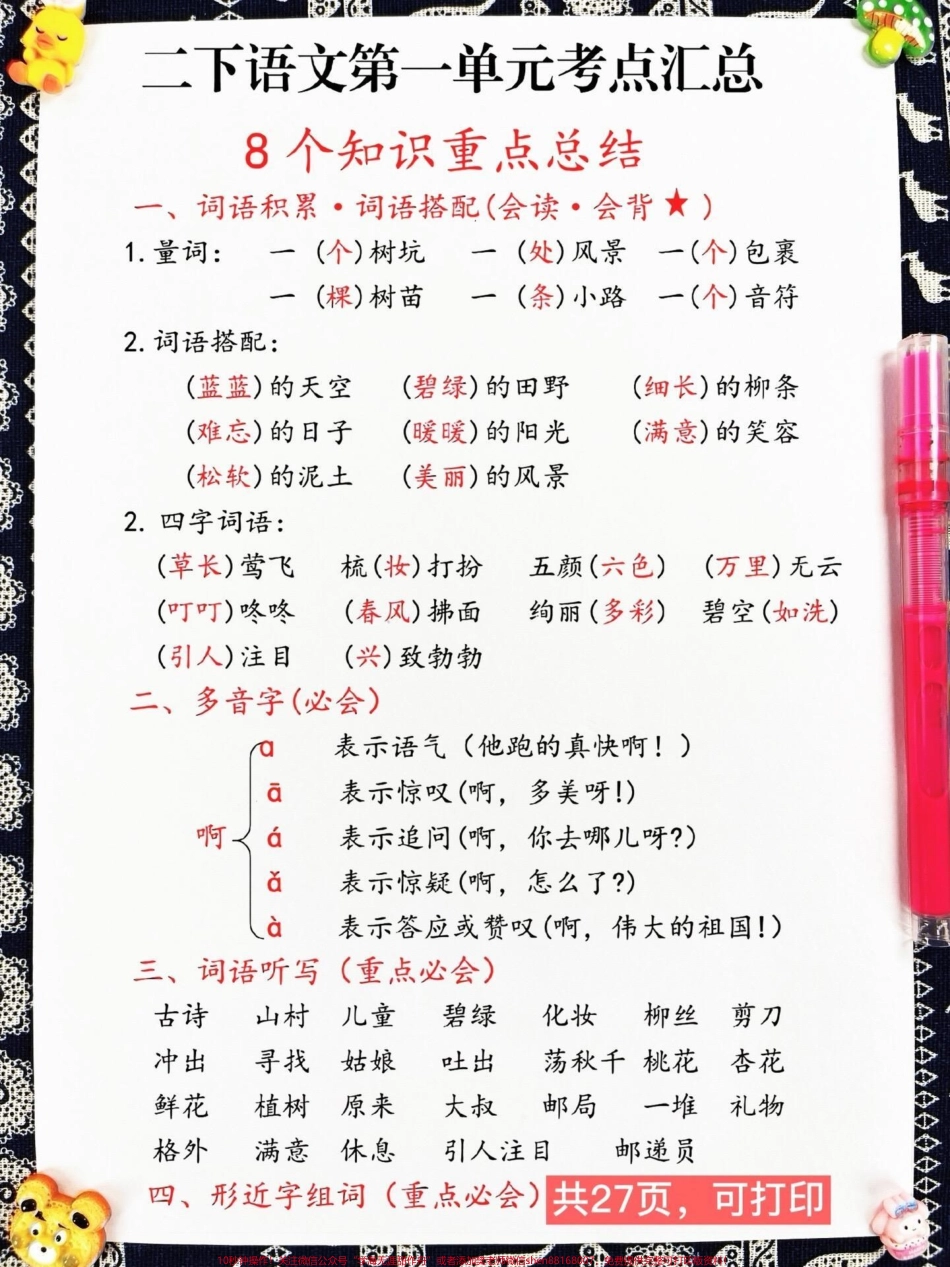 二下语文第一单元考点汇总
8个知识重点总结
一、词语积累·词语搭配(会读·会背★)
1.量词： 一(个)树坑 一(处)风景 一(个)包裹
一(棵)树苗 一(条)小路 一(个)音符
2.词语搭配：
(蓝蓝)的天空 (碧绿)的田野 (细长)的柳条
(难忘)的日子 (暖暖)的阳光 (满意)的笑容
(松软)的泥土 (美丽)的风景
2. 四字词语：
(草长)莺飞 梳(妆)打扮 五颜(六色) (万里)无云
(叮叮)咚咚 (春风)拂面 绚丽(多彩) 碧空(如洗)
(引人)注目 (兴)致勃勃
二、多音字(必会)
a 表示语气（他跑的真快啊！）
ā 表示惊叹(啊，多美呀!)
啊 á 表示追问(啊，你去哪儿呀?)
ǎ 表示惊疑(啊，怎么了?)
à 表示答应或赞叹(啊，伟大的祖国!)
三、词语听写（重点必会）
古诗 山村 儿童 碧绿 化妆 柳丝 剪刀
冲出 寻找 姑娘 吐出 荡秋千 桃花 杏花
鲜花 植树 原来 大叔 邮局 一堆 礼物
格外 满意 休息 引人注目 邮递员
四、形近字组词（重点必会）
共27页，可打印